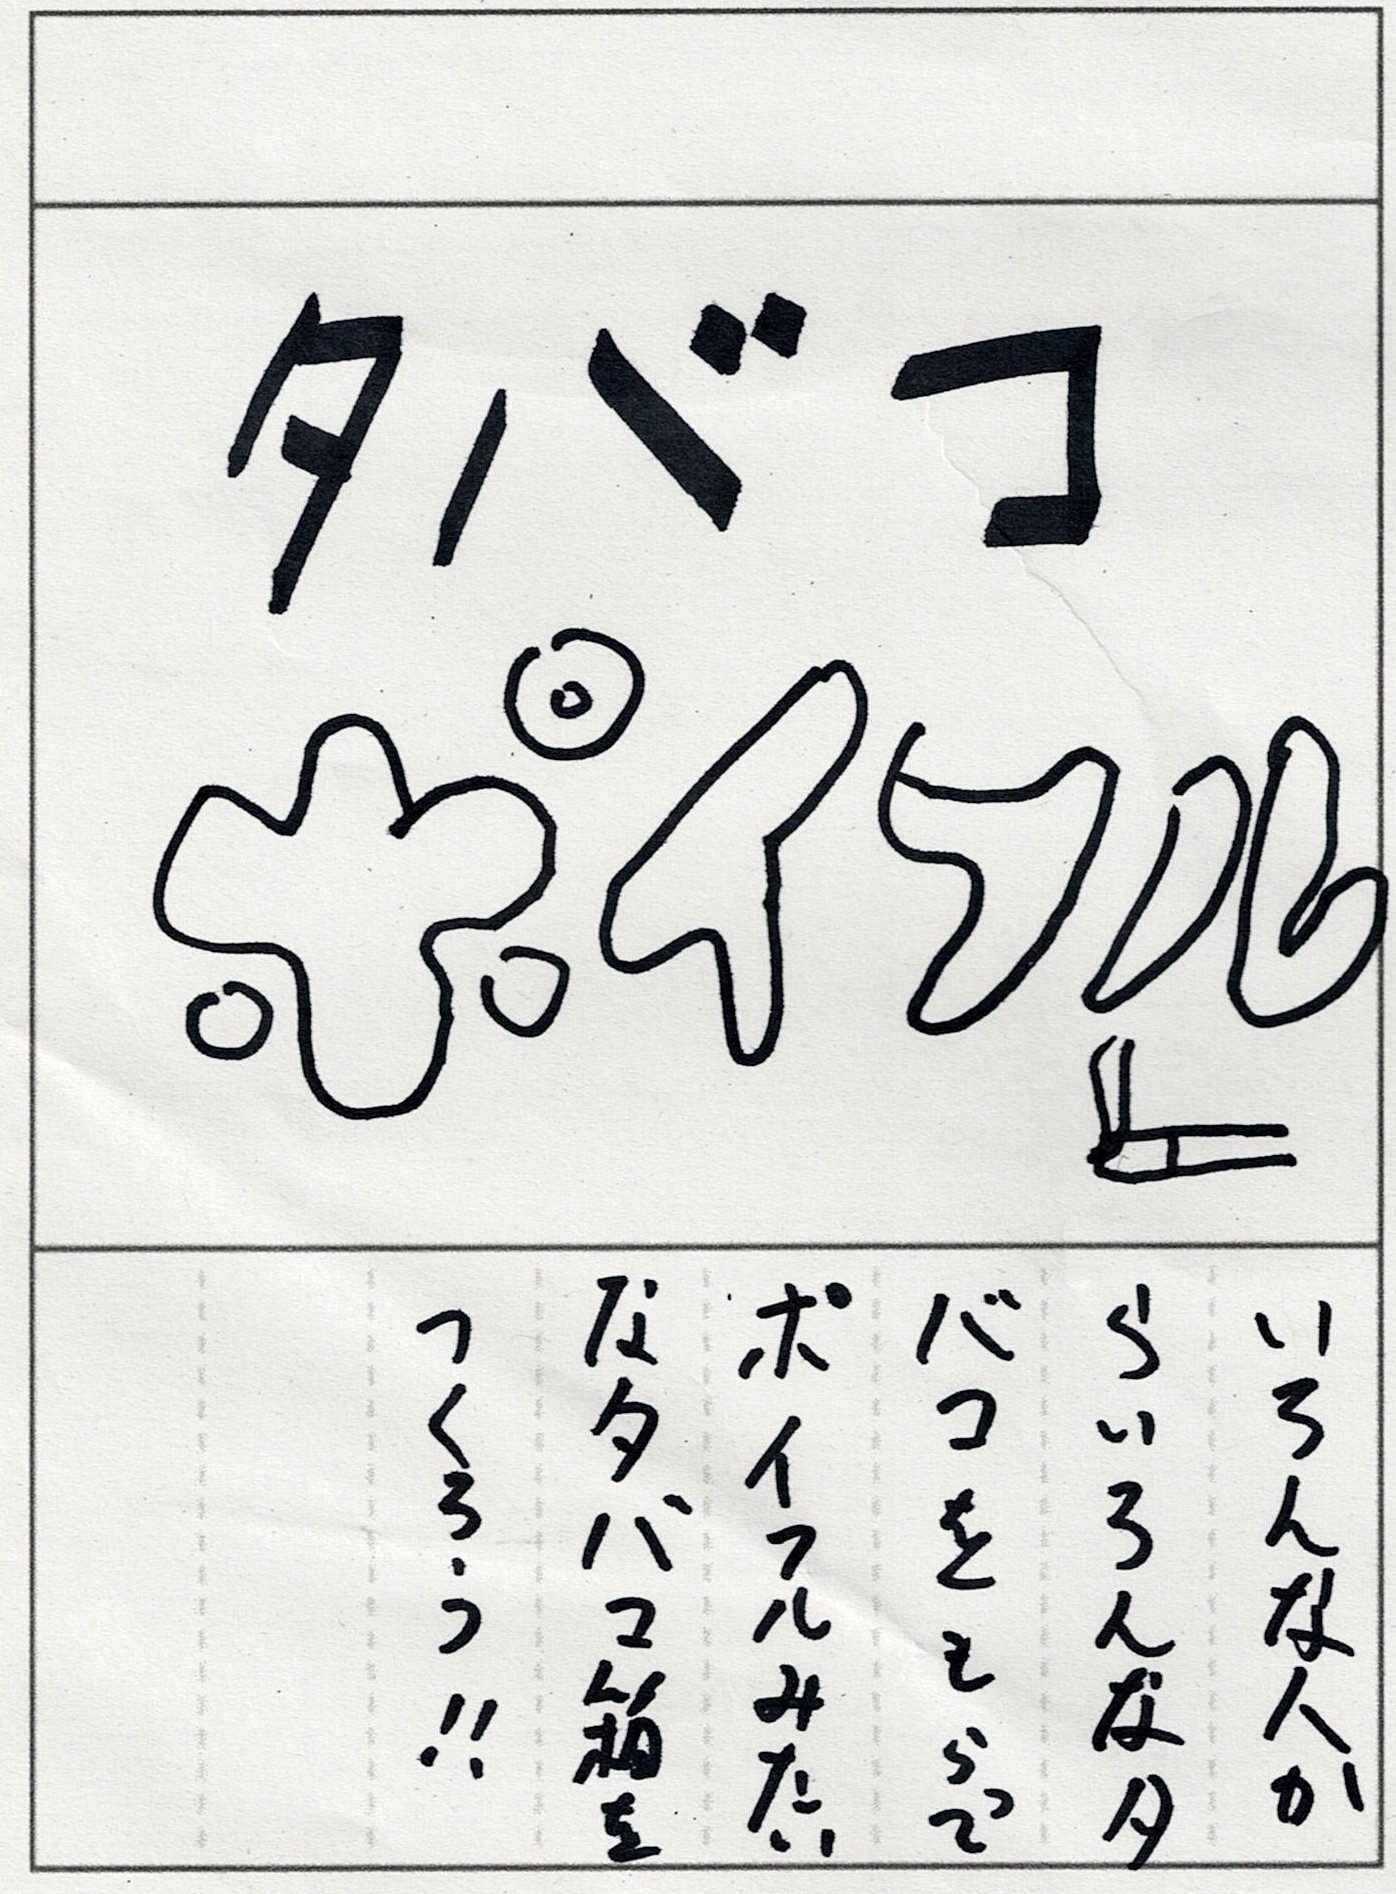 タバコ
ポイフル
いろんな人か
らいろんなタ
バコをもらって
ポイフルみたい
なタバコ箱を
つくろう!!